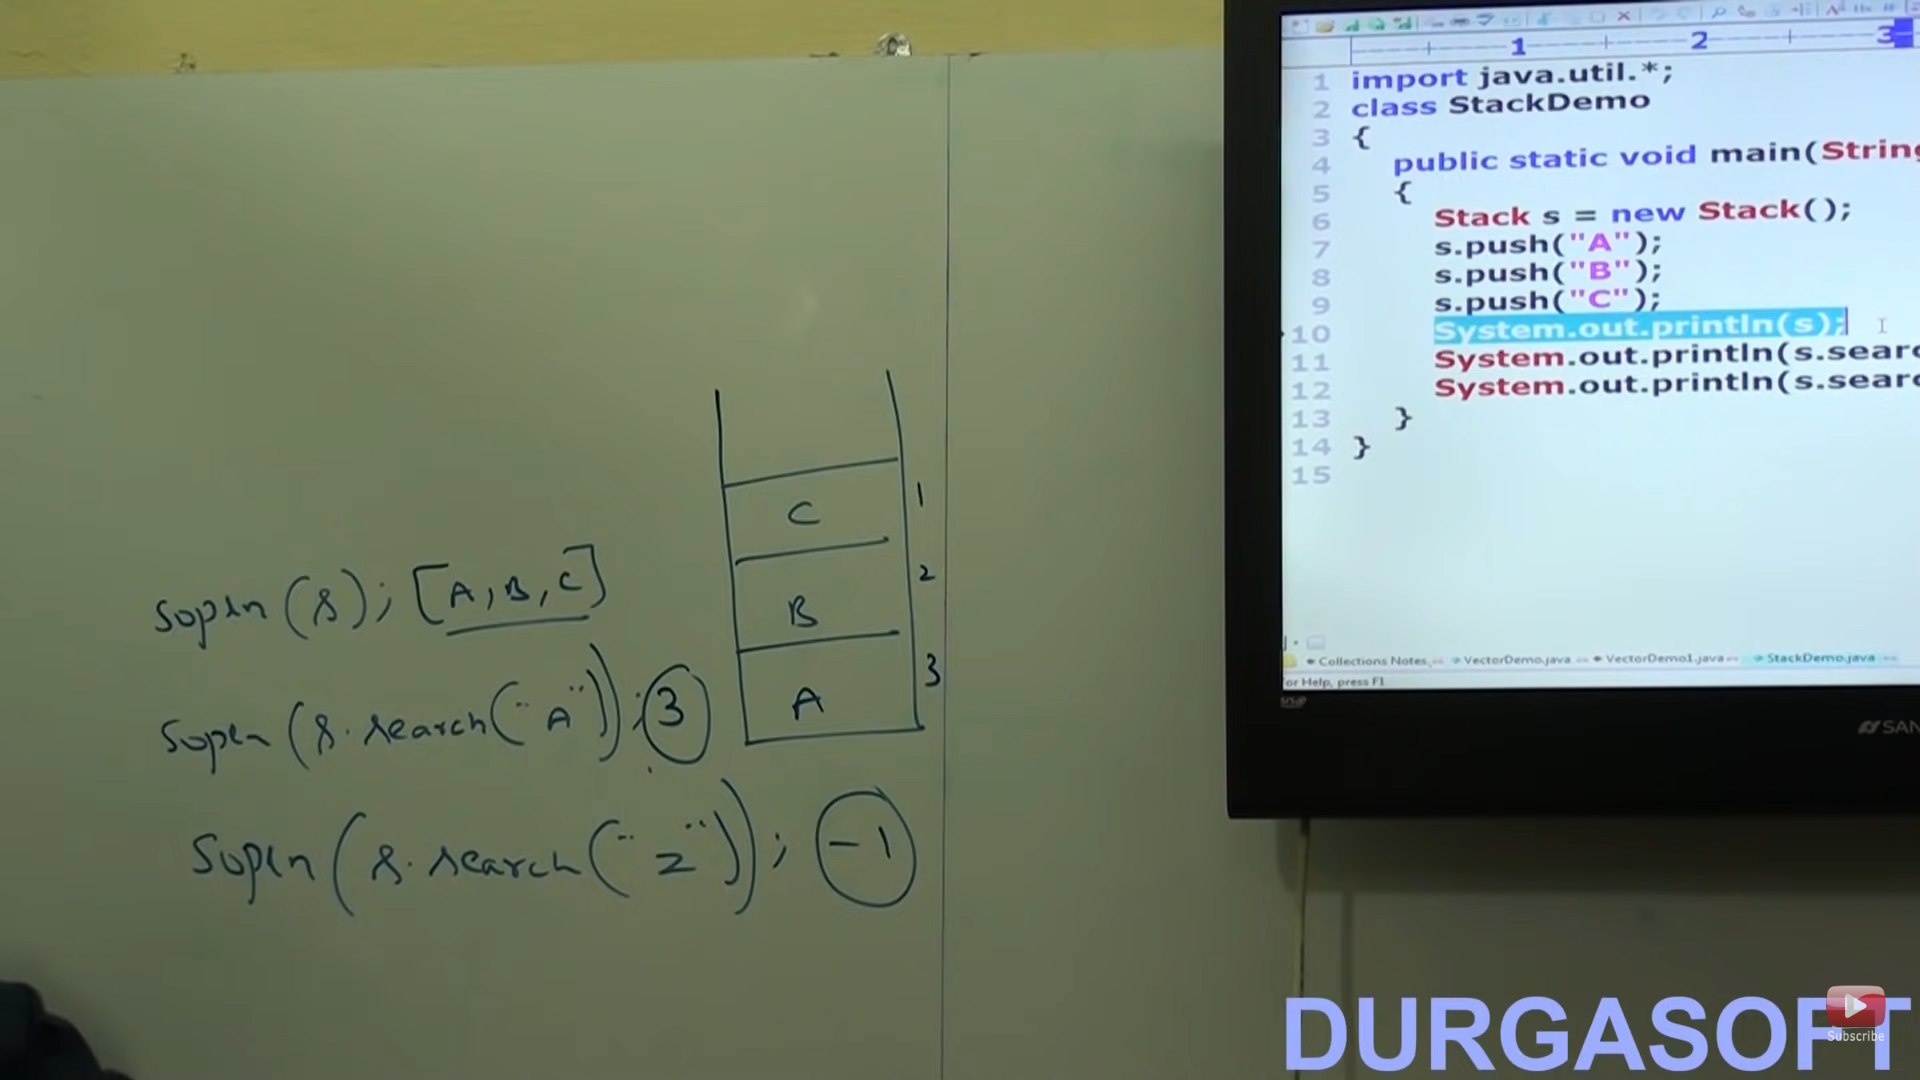 Sopln(s); [A, B, C]
Sopln(s.search("A")); 3
Sopln(s.search("z")); -1
C 1
B 2
A 3
1 2 3
1 import java.util.*;
2 class StackDemo
3 {
4 public static void main(String
5 {
6 Stack s = new Stack();
7 s.push("A");
8 s.push("B");
9 s.push("C");
10 System.out.println(s);
11 System.out.println(s.searc
12 System.out.println(s.searc
13 }
14 }
15
Collections Notes. VectorDemo.java VectorDemo1.java StackDemo.java
or Help, press F1
SAN
DURGASOFT
Subscribe